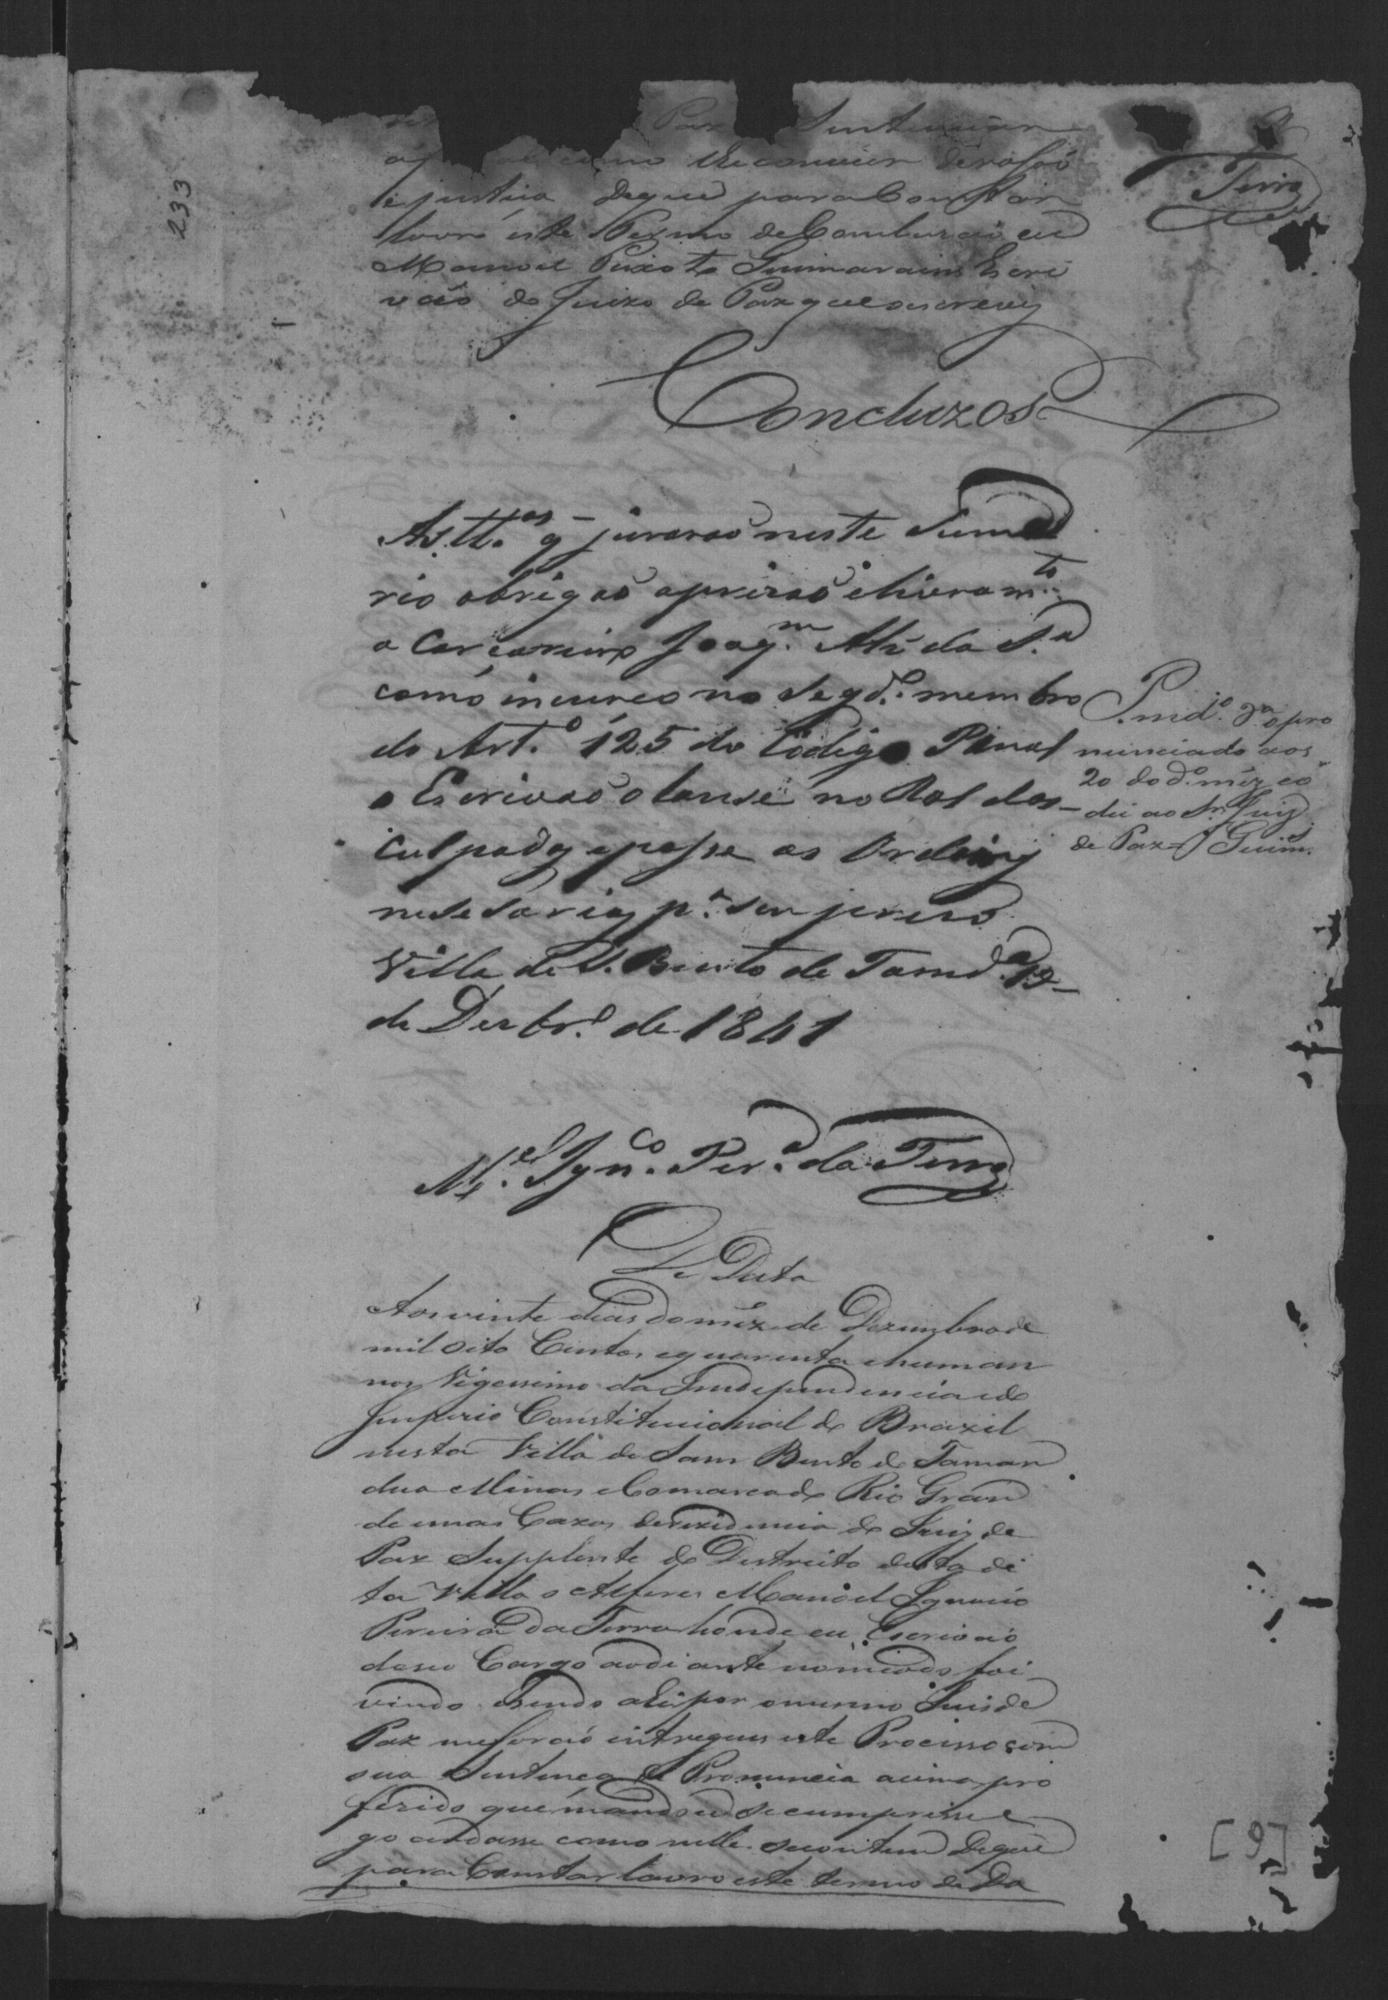 233
Paz Sentenciar
como Reconciar de rasaõ
e justiça de que para Constar
lavro este Termo de Concluzaõ eu
Manoel Peixoto Guimaraens Escri
vaõ do Juizo de Paz que o escrevy
Terra
Concluzos
As tt.as q jurarao neste Suma
rio obrigaõ a prizaõ e livram.to
o Carcareiro Joaq.m da S.a
como incurço no segd.o membro
do Art.o 125 do Codigo Penal
o Escrivaõ o lanse no Rol dos
culpados e passe as Ordeins
nesesarias p.a ser prezo
Villa de S. Bento de Tamd.a 19
de Dezbr.o de 1841
M.el Ign.co Per.a da Terra
P. md.o o pro
nunciado aos
20 do d.o mez e o
dei ao Sr. Juiz
de Paz Guim.
De Data
Aos vinte dias do mez de Dezembro de
mil oito Centos e quarenta e hum an
nos Vigessimo da Independencia e do
Imperio Constitucional do Brazil
nesta Villa de Sam Bento de Taman
dua Minas e Comarca do Rio Gran
de em as Cazas de rezidencia do Juiz de
Paz Supplente do Destrito desta di
ta Villa o Alferes Manoel Ignacio
Pereira da Terra honde eu Escrivaõ
de seu Cargo ao diante nomiado foi
vindo e sendo ahi por o mesmo Juis de
Paz me foraõ entregues este Processo com
sua Sentenca de Pronuncia acima pro
ferida que mandou se cumprisse e
goardasse como nella se contem De que
para Constar lavro este termo de Da
[9]